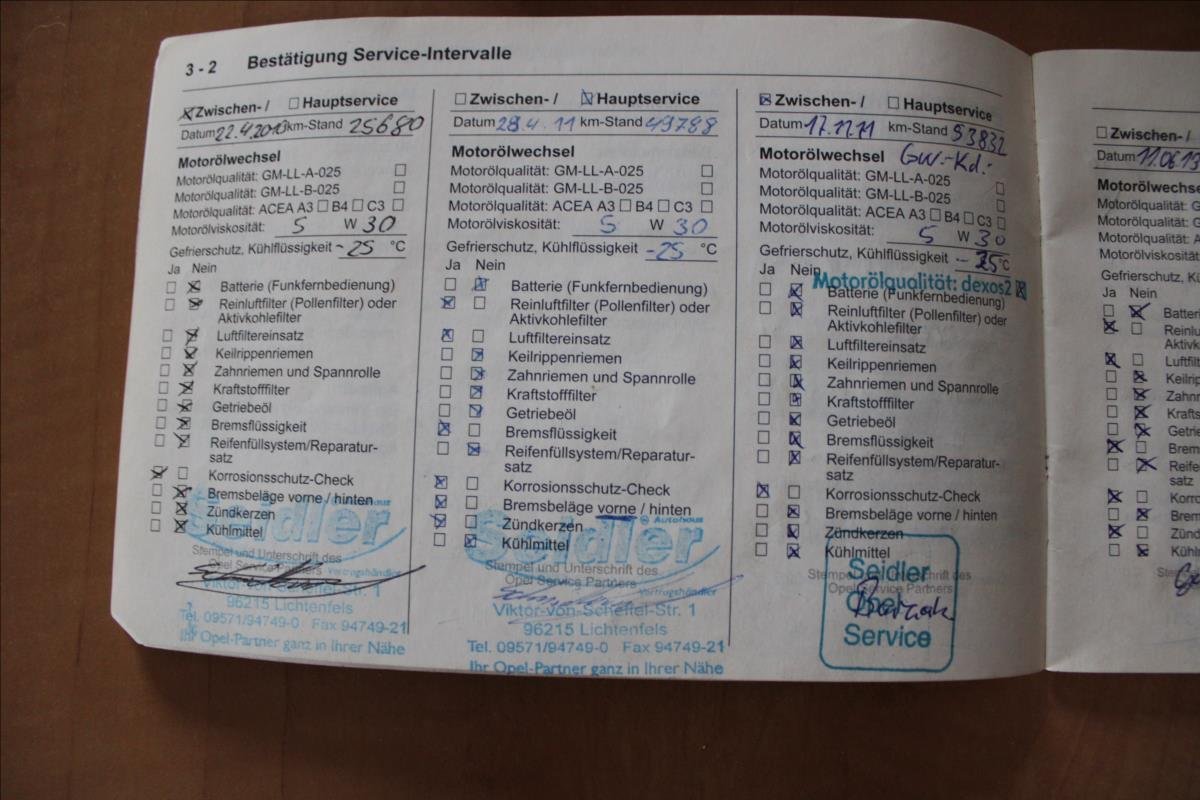 3 - 2 Bestätigung Service-Intervalle
Zwischen- / Hauptservice
Datum 22.4.2010 km-Stand 25680
Motorölwechsel
Motorölqualität: GM-LL-A-025
Motorölqualität: GM-LL-B-025
Motorölqualität: ACEA A3 B4 C3
Motorölviskosität: 5 W 30
Gefrierschutz, Kühlflüssigkeit -25 °C
Ja Nein
Batterie (Funkfernbedienung)
Reinluftfilter (Pollenfilter) oder
Aktivkohlefilter
Luftfiltereinsatz
Keilrippenriemen
Zahnriemen und Spannrolle
Kraftstofffilter
Getriebeöl
Bremsflüssigkeit
Reifenfüllsystem/Reparatur-
satz
Korrosionsschutz-Check
Bremsbeläge vorne / hinten
Zündkerzen
Kühlmittel
Seidler
Stempel und Unterschrift des
Opel Service Partners Vertragshändler
Viktor-von-Scheffel-Str. 1
96215 Lichtenfels
Tel. 09571/94749-0 Fax 94749-21
Ihr Opel-Partner ganz in Ihrer Nähe
Zwischen- / Hauptservice
Datum 28.4.11 km-Stand 49788
Motorölwechsel
Motorölqualität: GM-LL-A-025
Motorölqualität: GM-LL-B-025
Motorölqualität: ACEA A3 B4 C3
Motorölviskosität: 5 W 30
Gefrierschutz, Kühlflüssigkeit -25 °C
Ja Nein
Batterie (Funkfernbedienung)
Reinluftfilter (Pollenfilter) oder
Aktivkohlefilter
Luftfiltereinsatz
Keilrippenriemen
Zahnriemen und Spannrolle
Kraftstofffilter
Getriebeöl
Bremsflüssigkeit
Reifenfüllsystem/Reparatur-
satz
Korrosionsschutz-Check
Bremsbeläge vorne / hinten
Zündkerzen
Kühlmittel
Autohaus
Seidler
Stempel und Unterschrift des
Opel Service Partners Vertragshändler
Viktor-von-Scheffel-Str. 1
96215 Lichtenfels
Tel. 09571/94749-0 Fax 94749-21
Ihr Opel-Partner ganz in Ihrer Nähe
Zwischen- / Hauptservice
Datum 17.11.11 km-Stand 53832
Motorölwechsel Gw.-Kd.:
Motorölqualität: GM-LL-A-025
Motorölqualität: GM-LL-B-025
Motorölqualität: ACEA A3 B4 C3
Motorölviskosität: 5 W 30
Gefrierschutz, Kühlflüssigkeit °C
Ja Nein
Motorölqualität: dexos2
Batterie (Funkfernbedienung)
Reinluftfilter (Pollenfilter) oder
Aktivkohlefilter
Luftfiltereinsatz
Keilrippenriemen
Zahnriemen und Spannrolle
Kraftstofffilter
Getriebeöl
Bremsflüssigkeit
Reifenfüllsystem/Reparatur-
satz
Korrosionsschutz-Check
Bremsbeläge vorne / hinten
Zündkerzen
Kühlmittel
Stempel und Unterschrift des
Opel Service Partners
Seidler
Opel
Service
Zwischen- /
Datum 11.06.13
Motorölwechse
Motorölqualität: G
Motorölqualität: G
Motorölqualität: A
Motorölviskosität
Gefrierschutz, Kü
Ja Nein
Batterie
Reinlu
Aktivk
Luftfilt
Keilrip
Zahnr
Kraftst
Getrie
Brem
Reife
satz
Korro
Brem
Zünd
Kühlm